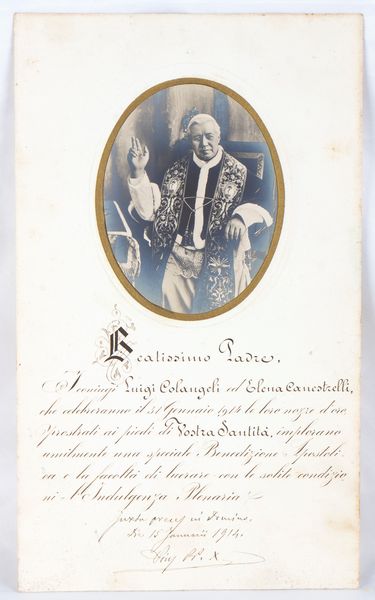 Beatissimo Padre,
I coniugi Luigi Colangeli ed Elena Canestrelli,
che celebreranno il 31 Gennaio 1914 le loro nozze d'oro
prostrati ai piedi di Vostra Santità, implorano
umilmente una speciale Benedizione Apostoli
ca e la facoltà di lucrare con le solite condizio
ni l'Indulgenza Plenaria
Juxta preces in Domino.
Die 15 Januarii 1914.
Pius PP. X.